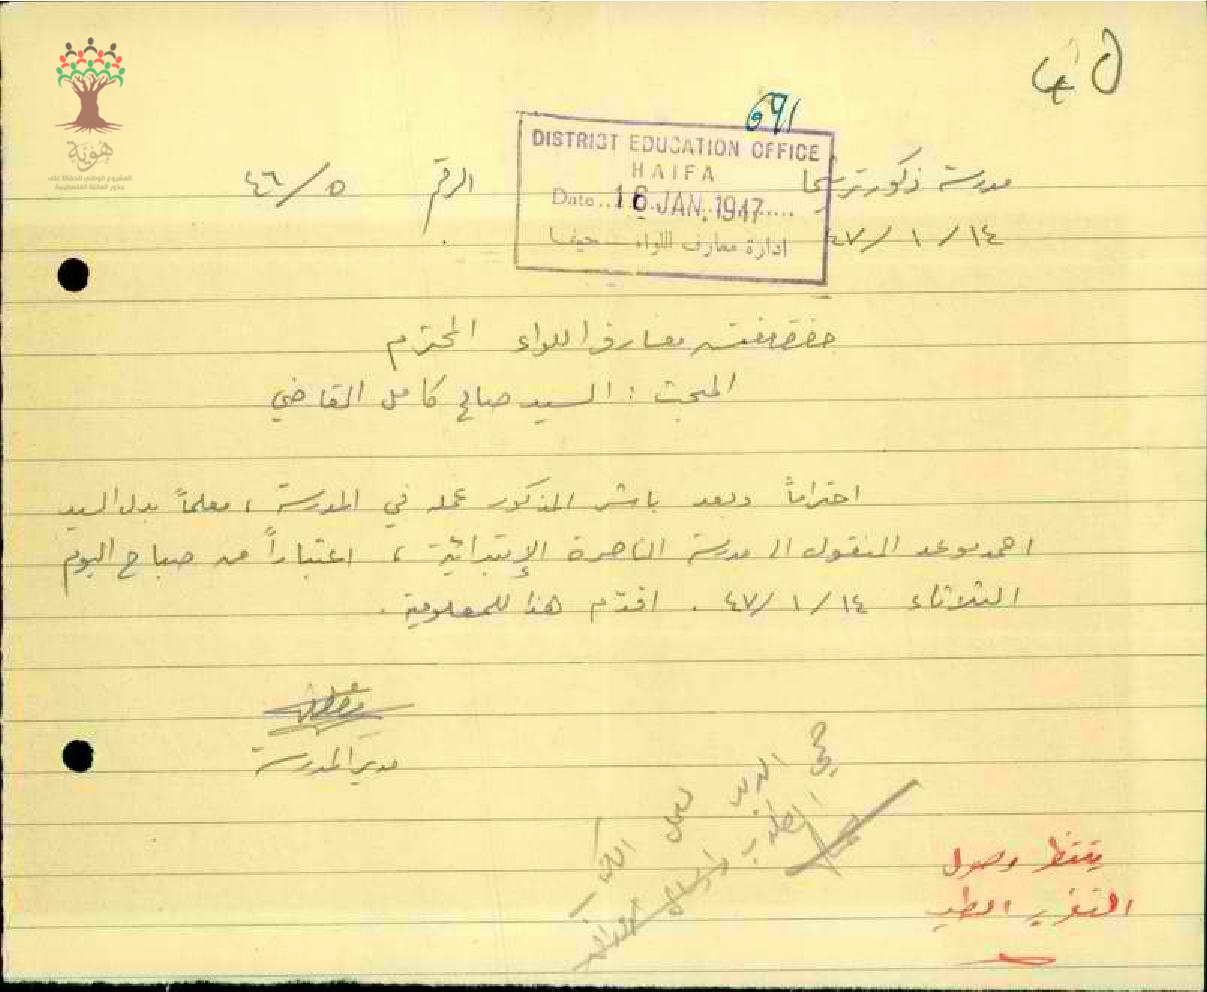 هوية
المشروع الوطني للحفاظ على
جذور العائلة الفلسطينية
691
DISTRICT EDUCATION OFFICE
HAIFA
Date 16 JAN. 1947
ادارة معارف اللواء - حيفا
مدرسة ذكور ترشيحا
الرقم ٥/٤٦
١٤/١/٤٧
حضرة مفتش معارف اللواء المحترم
المبحث : السيد صالح كامل القاضي
احتراماً وبعد باشر المذكور عمله في المدرسة ، معلماً بدل السيد
احمد موعد المنقول الى مدرسة الناصرة الإبتدائية ، اعتباراً من صباح اليوم
الثلاثاء ١٤/١/٤٧ . اقدّم هذا للمعلومية .
مدير المدرسة
ينتظر وصول
التقرير الطبي